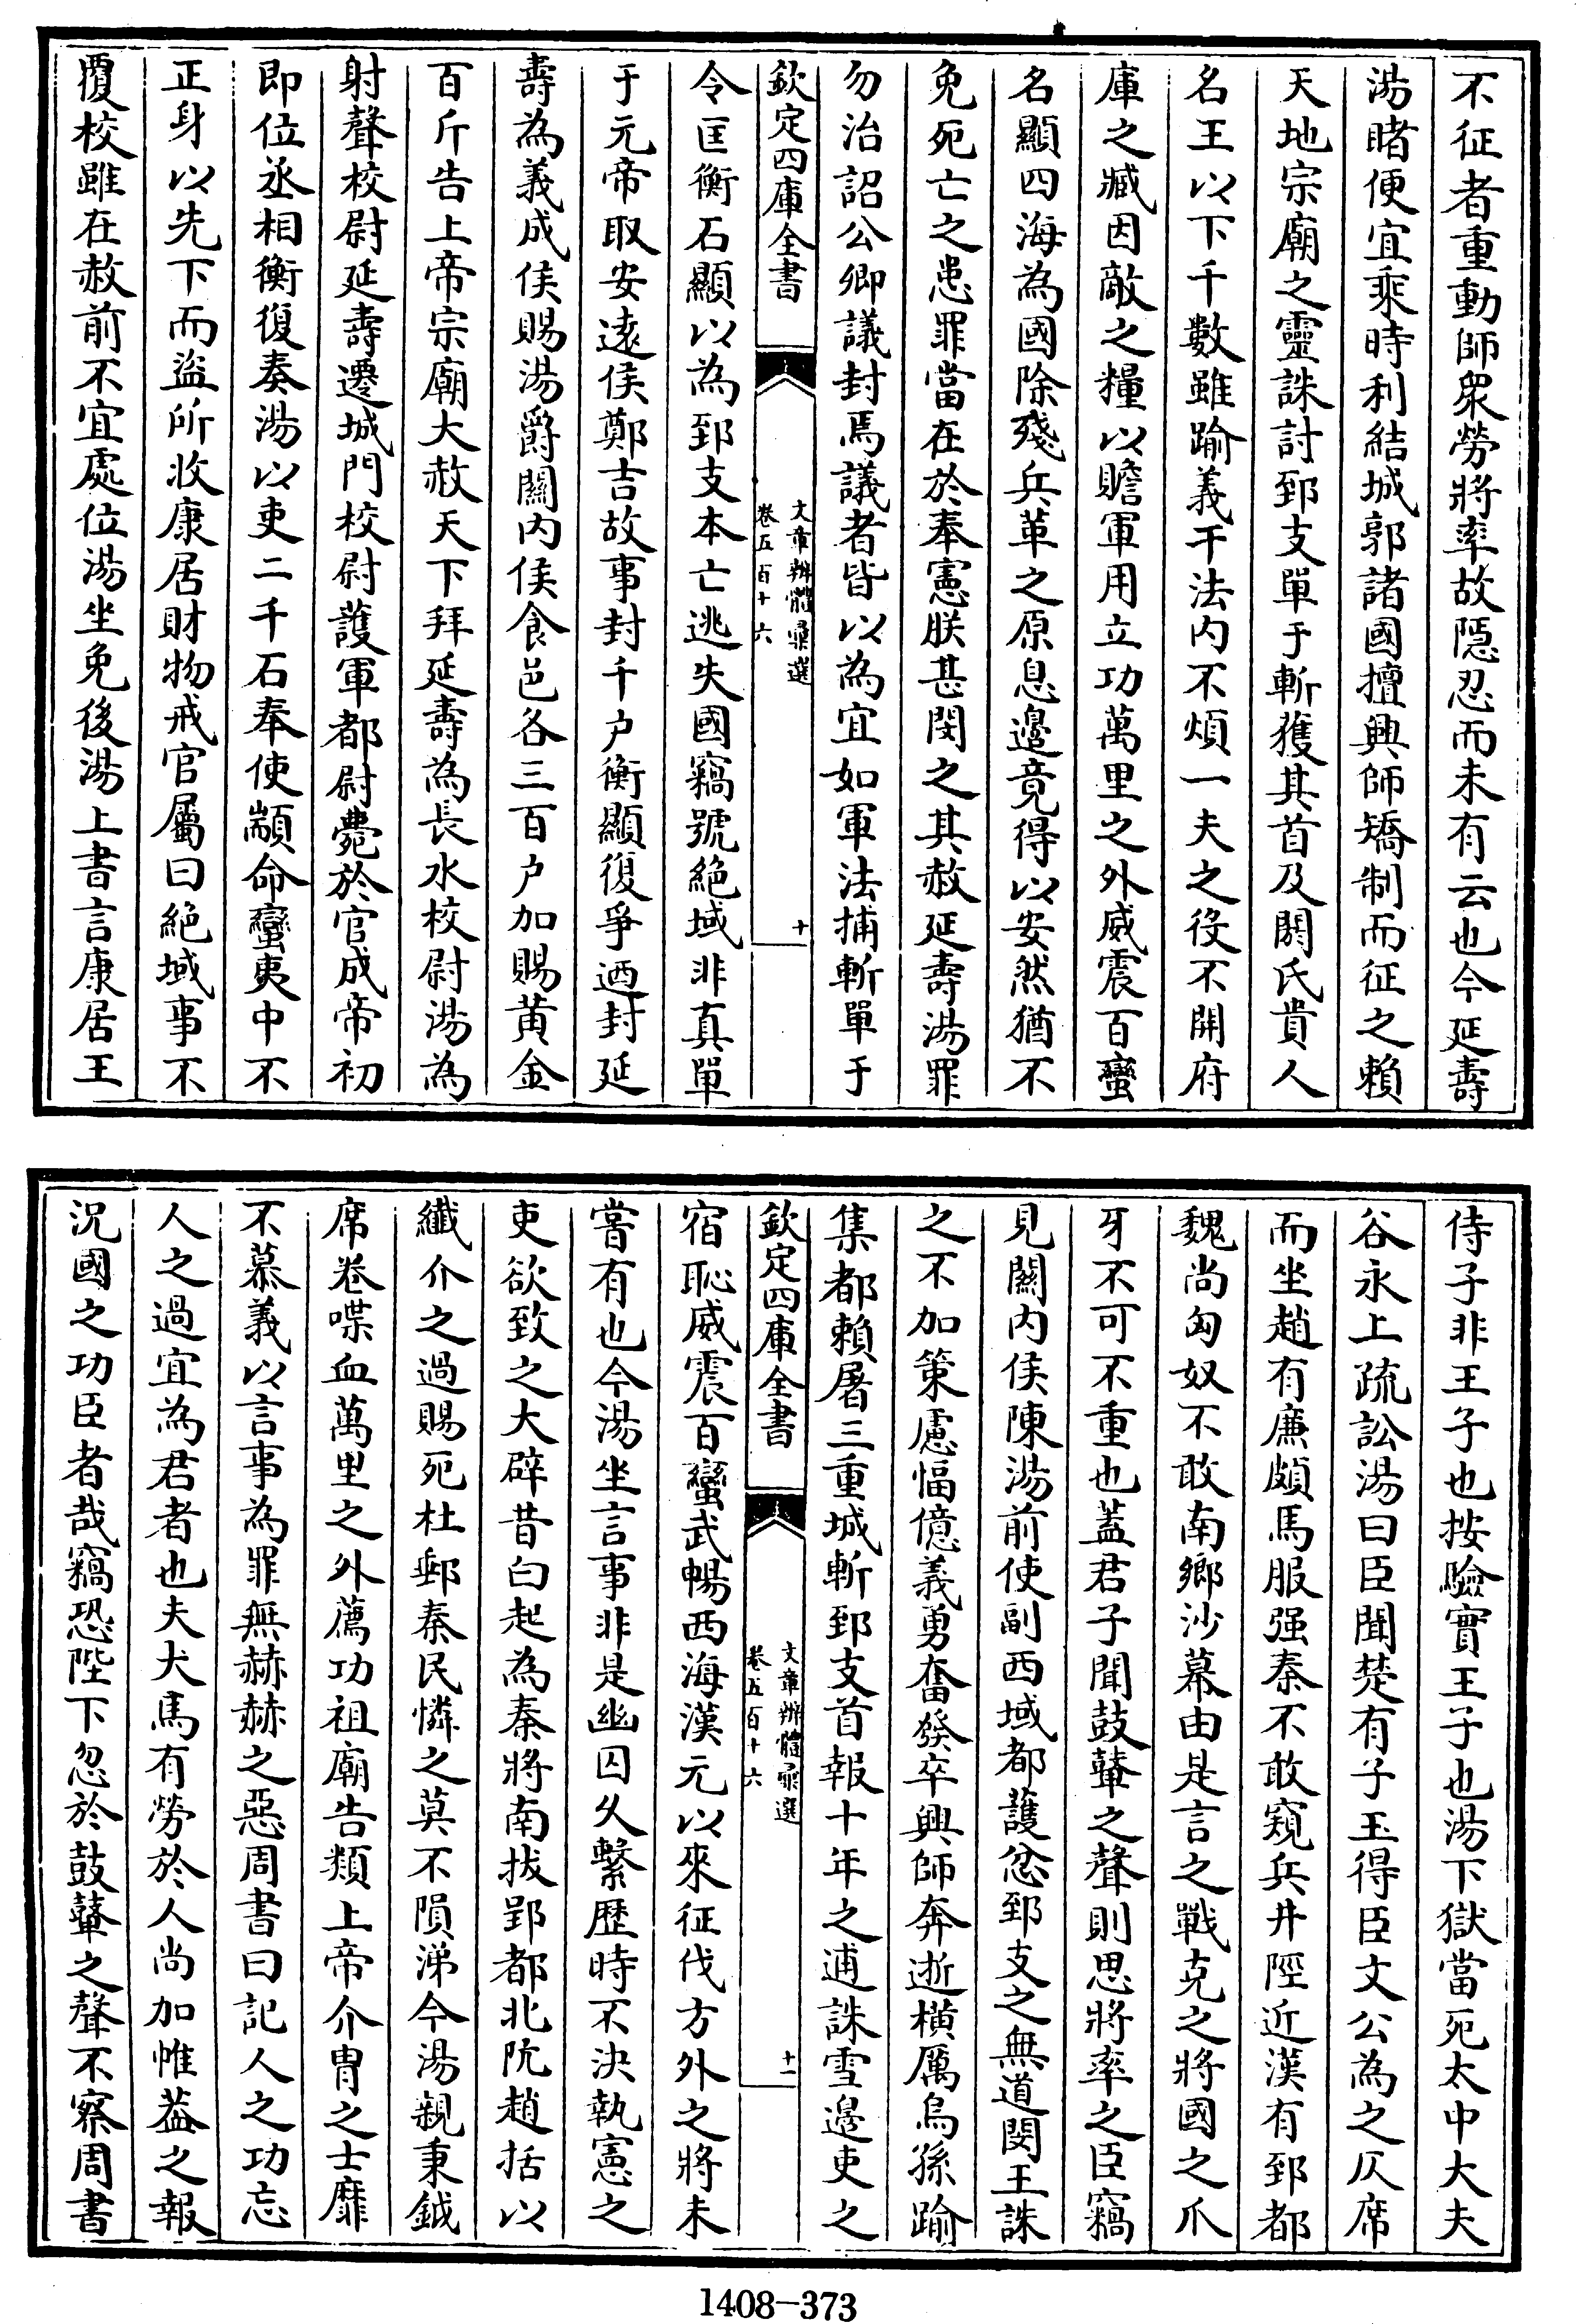 不征者重動師衆勞將率故隠忍而未有云也今延壽
湯睹便宜乘時利結城郭諸國擅興師矯制而征之賴
天地宗廟之靈誅討郅支單于斬獲其首及閼氏貴人
名王以下千數雖踰義干法内不煩一夫之役不開府
庫之臧因敵之糧以贍軍用立功萬里之外威震百蠻
名顯四海為國除殘兵革之原息邊竟得以安然猶不
免死亡之患罪當在於奉憲朕甚閔之其赦延壽湯罪
勿治詔公卿議封焉議者皆以為宜如軍法捕斬單于
欽定四庫全書
文章辨體彚選
卷五百十六
十
令匡衡石顯以為郅支本亡逃失國竊號絶域非真單
于元帝取安逺侯鄭吉故事封千户衡顯復爭迺封延
壽為義成侯賜湯爵關内侯食邑各三百户加賜黄金
百斤告上帝宗廟大赦天下拜延壽為長水校尉湯為
射聲校尉延壽遷城門校尉護軍都尉薨於官成帝初
即位丞相衡復奏湯以吏二千石奉使顓命蠻夷中不
正身以先下而盜所收康居財物戒官屬曰絶域事不
覆校雖在赦前不宜處位湯坐免後湯上書言康居王
侍子非王子也按驗實王子也湯下獄當死太中大夫
谷永上疏訟湯曰臣聞楚有子玉得臣文公為之仄席
而坐趙有廉頗馬服强秦不敢窺兵井陘近漢有郅都
魏尚匈奴不敢南鄉沙幕由是言之戰克之將國之爪
牙不可不重也葢君子聞鼓鼙之聲則思將率之臣竊
見關内侯陳湯前使副西域都護忿郅支之無道閔王誅
之不加策慮愊億義勇奮發卒興師奔逝横厲烏孫踰
集都賴屠三重城斬郅支首報十年之逋誅雪邊吏之
欽定四庫全書
文章辨體彚選
卷五百十六
十一
宿恥威震百蠻武暢西海漢元以來征伐方外之將未
嘗有也今湯坐言事非是幽囚久繫歴時不決執憲之
吏欲致之大辟昔白起為秦將南拔郢都北阬趙括以
纖介之過賜死杜郵秦民憐之莫不隕涕今湯親秉鉞
席卷喋血萬里之外薦功祖廟告類上帝介胄之士靡
不慕義以言事為罪無赫赫之惡周書曰記人之功忘
人之過宜為君者也夫犬馬有勞於人尚加帷葢之報
況國之功臣者哉竊恐陛下忽於鼓鼙之聲不察周書
1408—373